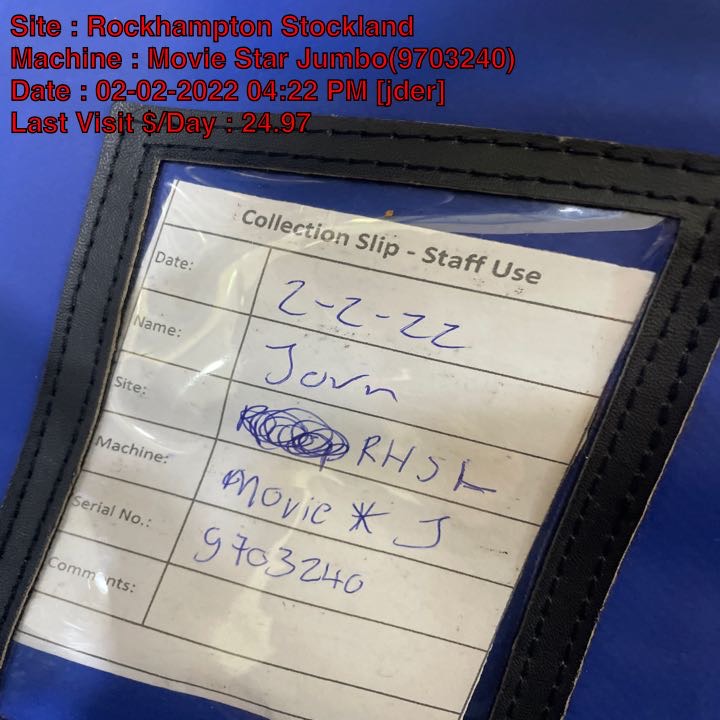 Site : Rockhampton Stockland
Machine : Movie Star Jumbo(9703240)
Date : 02-02-2022 04:22 PM [jder]
Last Visit $/Day : 24.97
Collection Slip - Staff Use
Date: 2-2-22
Name: Jorn
Site: RHSL
Machine: Movie * J
Serial No.: 9703240
Comments: